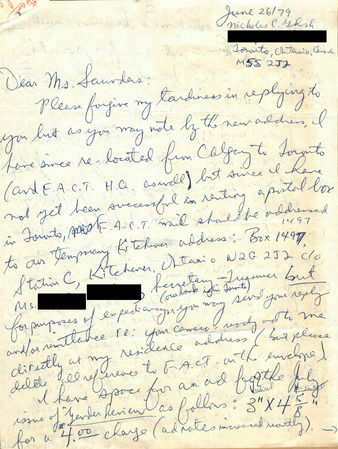 June 26/79
Nicholas C. Ghosh
Toronto, Ontario, Canada
M5S 2J2
Dear Ms. Saunders:
Please forgive my tardiness in replying to
you but as you may note by the new address, I
have since re-located from Calgary to Toronto
(and F.A.C.T. H.Q. as well) but since I have
not yet been successful in renting a postal box
in Toronto, F.A.C.T. mail should be addressed
1497
to our temporary Kitchener address: Box 1497,
Station C, Kitchener, Ontario N2G 2J2 c/o
Ms. Secretary-Treasurer but
(outside of Toronto)
for purposes of expediency, you may send your reply
and/or remittance re: your camera ready ad to me
directly at my residence address (but please
delete all reference to F.A.C.T. on the envelope)
I have space for an ad for the July
issue of "Gender Review" as follows: 3" X 4 5/8"
for a 4.00 charge (ad rates increased recently). →